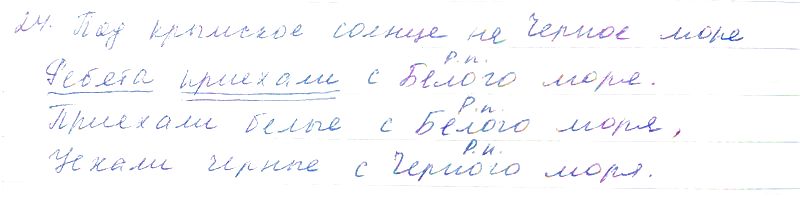 24. Под крымское солнце на Черное море
Р.п.
Ребята приехали с Белого моря.
Р.п.
Приехали белые с Белого моря,
Р.п.
Уехали черные с Черного моря.